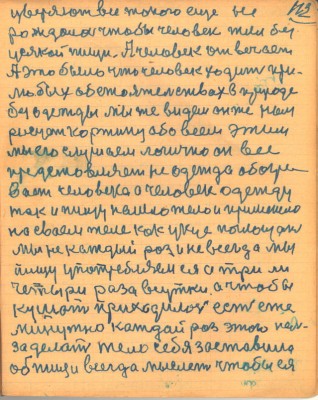 уверяют все такого еще не
рождалось чтобы человек жил без
всякой пищи. А человек отвечает
А это было что человек ходит при
любых обстоятельствах в природе
без одежды мы же видим он же нам
рисует картину обо всем этим
мы его слушаем логично он все
представляет не одежда обогре
вает человека а человек одежду
так и пищу нашло тело и применило
на своем теле как уже
мы не каждый раз и не всегда мы
пищу употребляем а три ли
четыри раза в сутки а чтобы
кушать приходилось есть еже
минутно каждый раз этого
заделать тело себя заставило
об пищи всегда мыслет чтобы ся